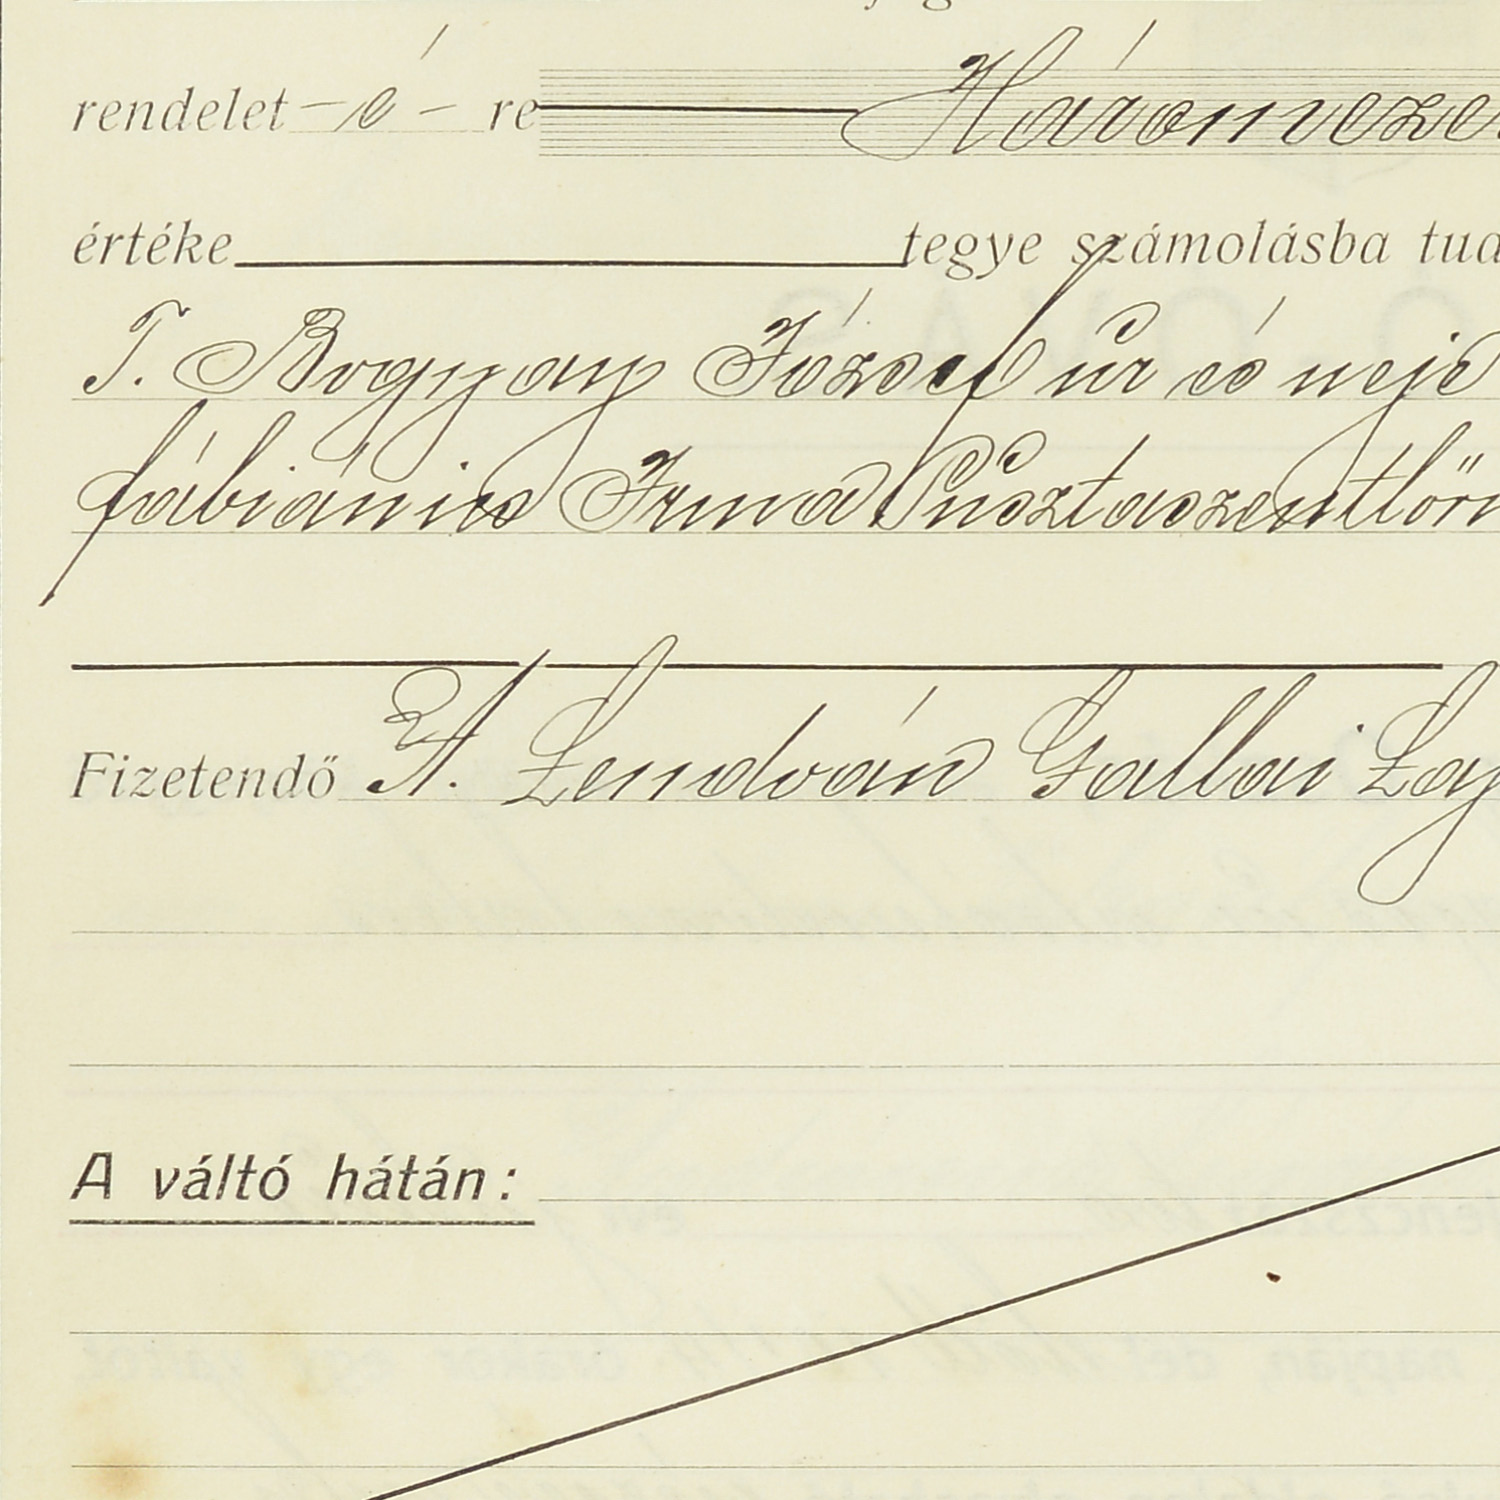 rendelet – é – re Háromeze
értéke tegye számolásba tud
T. Bogyay József úr és neje
fábiánics Irma Pusztaszentlőrn
Fizetendő A. Lendván Gallai Laj
A váltó hátán: